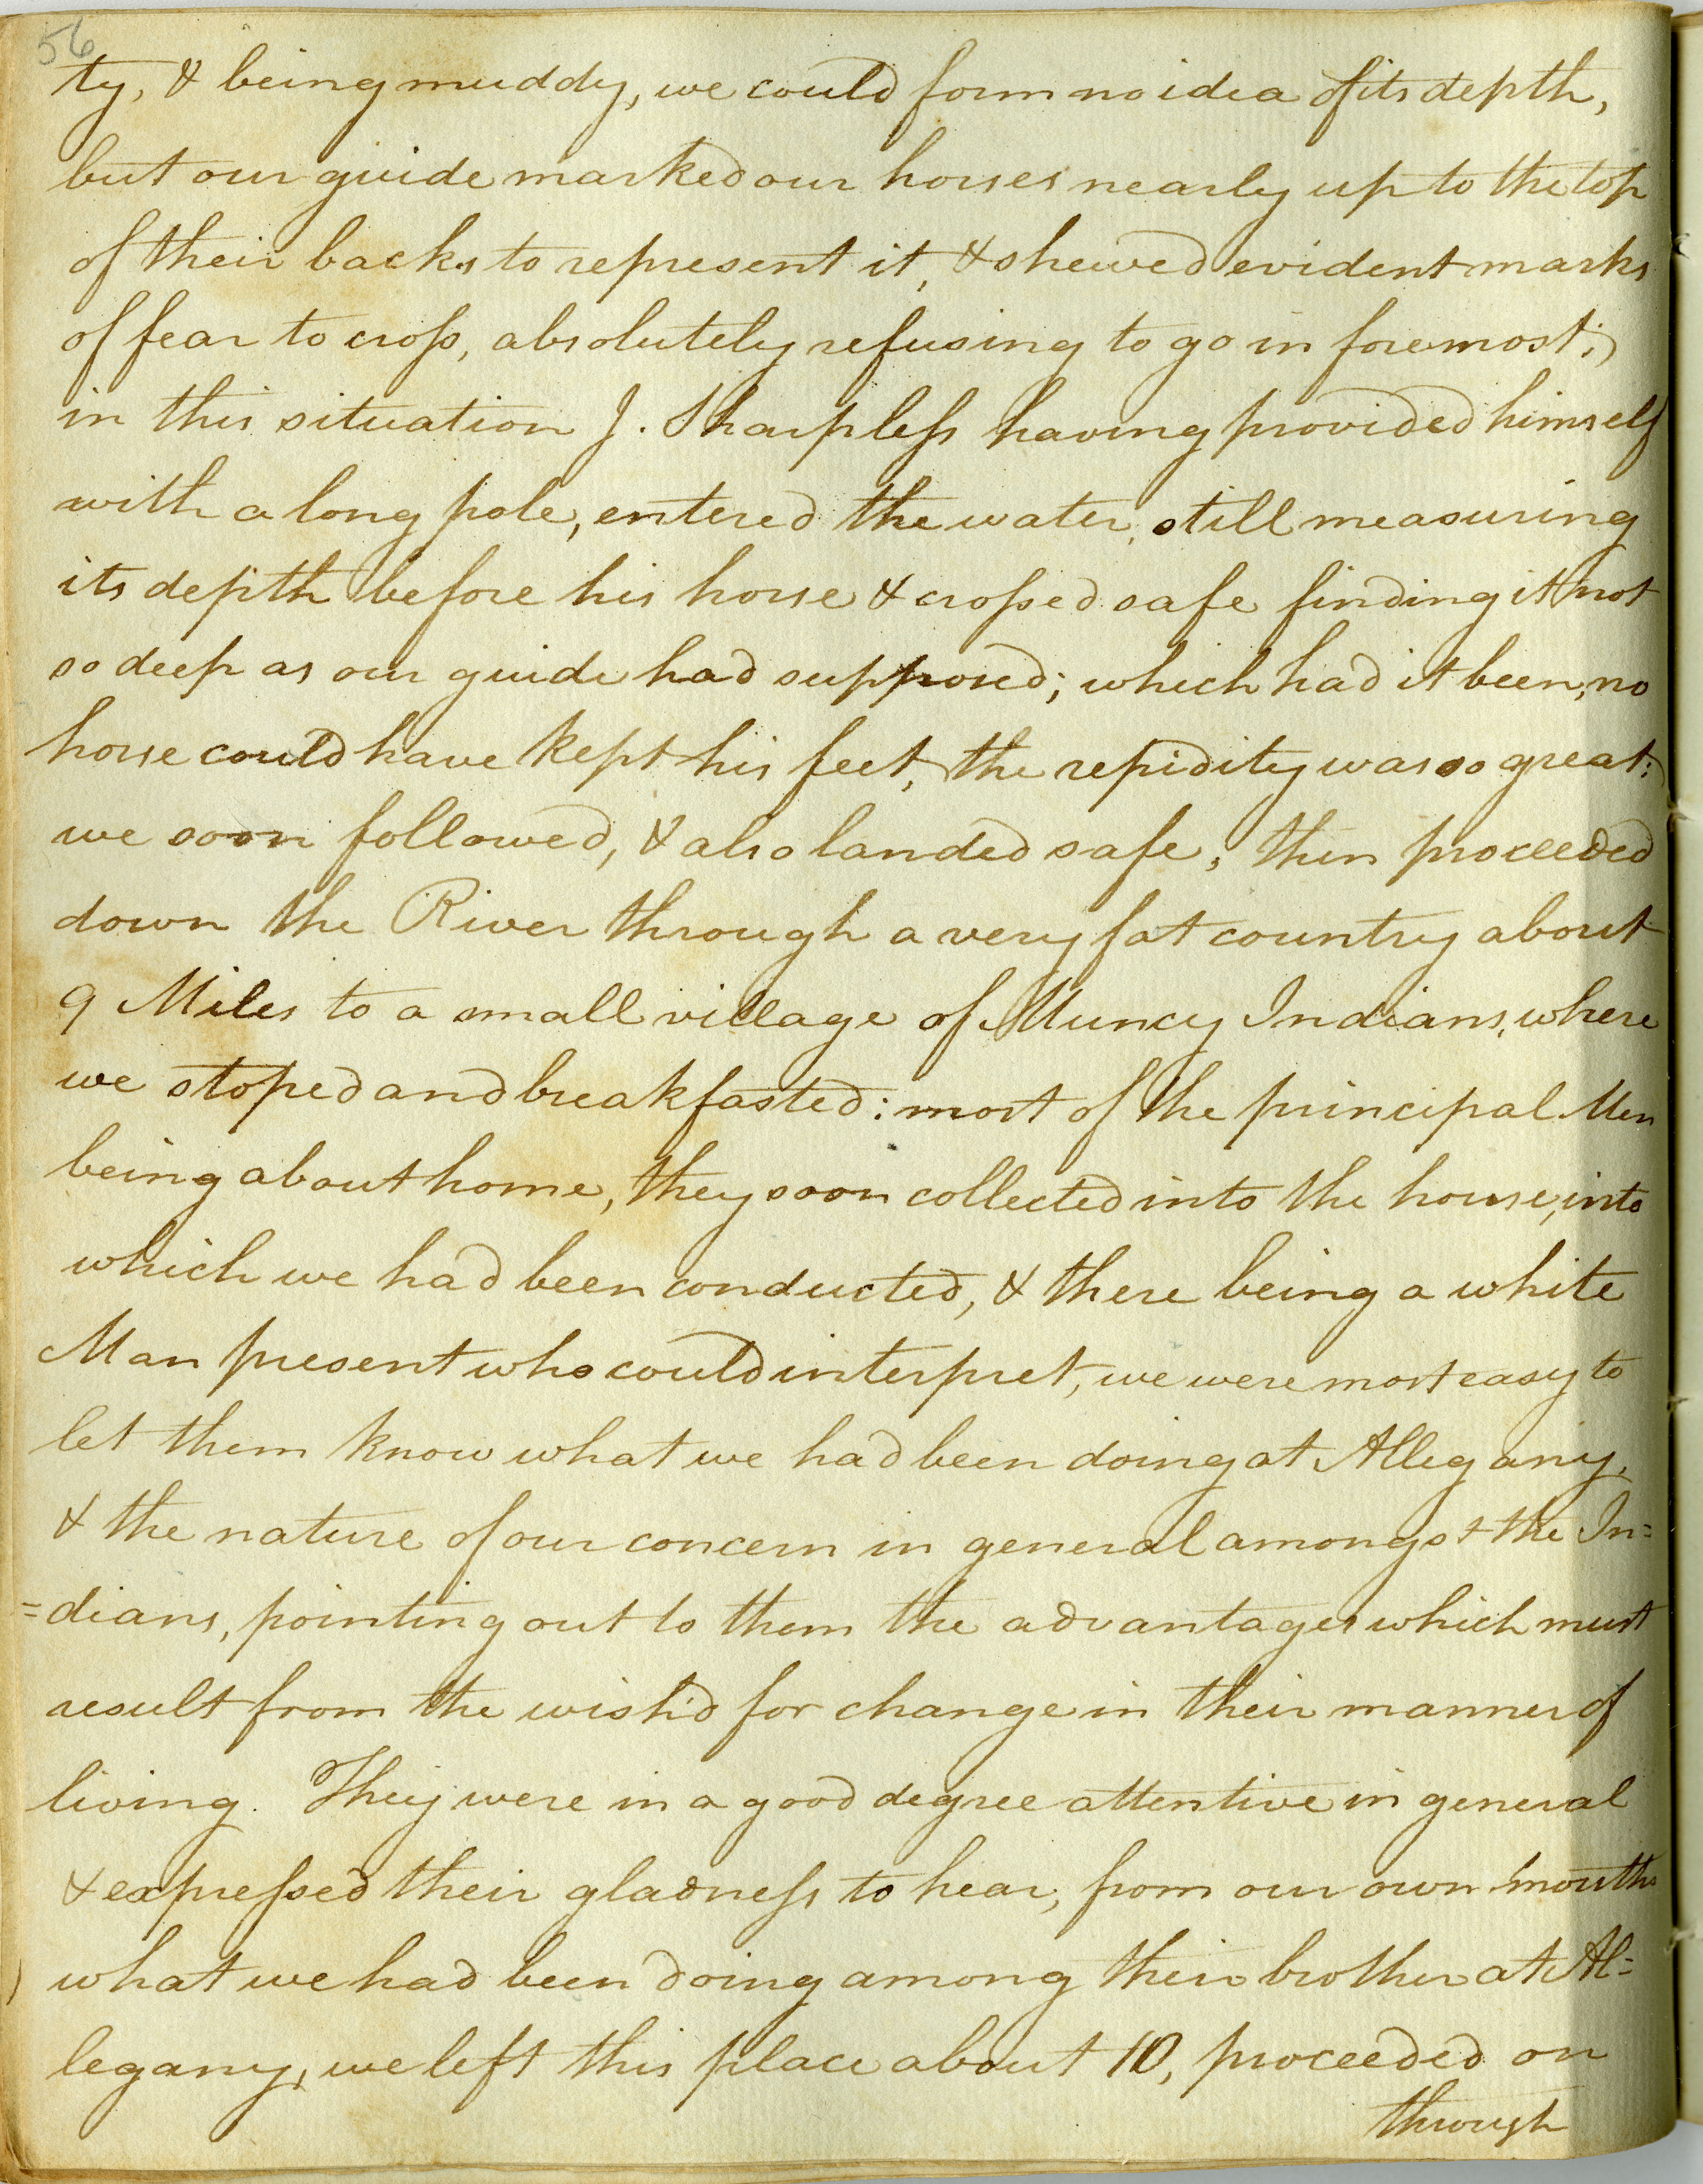 56
ty, & being muddy, we could form no idea of its depth,
but our guide marked our horses nearly up to the top
of their backs to represent it, & shewed evident marks
of fear to cross, absolutely refusing to go in foremost;
in this situation J. Sharpless having provided himself
with a long pole, entered the water, still measuring
its depth before his horse & crossed safe finding it not
so deep as our guide had supposed; which had it been, no
horse could have kept his feet, the repidity was so great:
we soon followed, & also landed safe, then proceeded
down the River through a very fat country about
9 Miles to a small village of Muncy Indians, where
we stoped and breakfasted: most of the principal Men
being about home, they soon collected into the house, into
which we had been conducted, & there being a white
Man present who could interpret, we were most easy to
let them know what we had been doing at Allegany,
& the nature of our concern in general amongst the In=
=dians, pointing out to them the advantages which must
result from the wish'd for change in their manner of
living. They were in a good degree attentive in general
& expressed their gladness to hear, from our own mouths
what we had been doing among their brother at Al=
legany, we left this place about 10, proceeded on
through